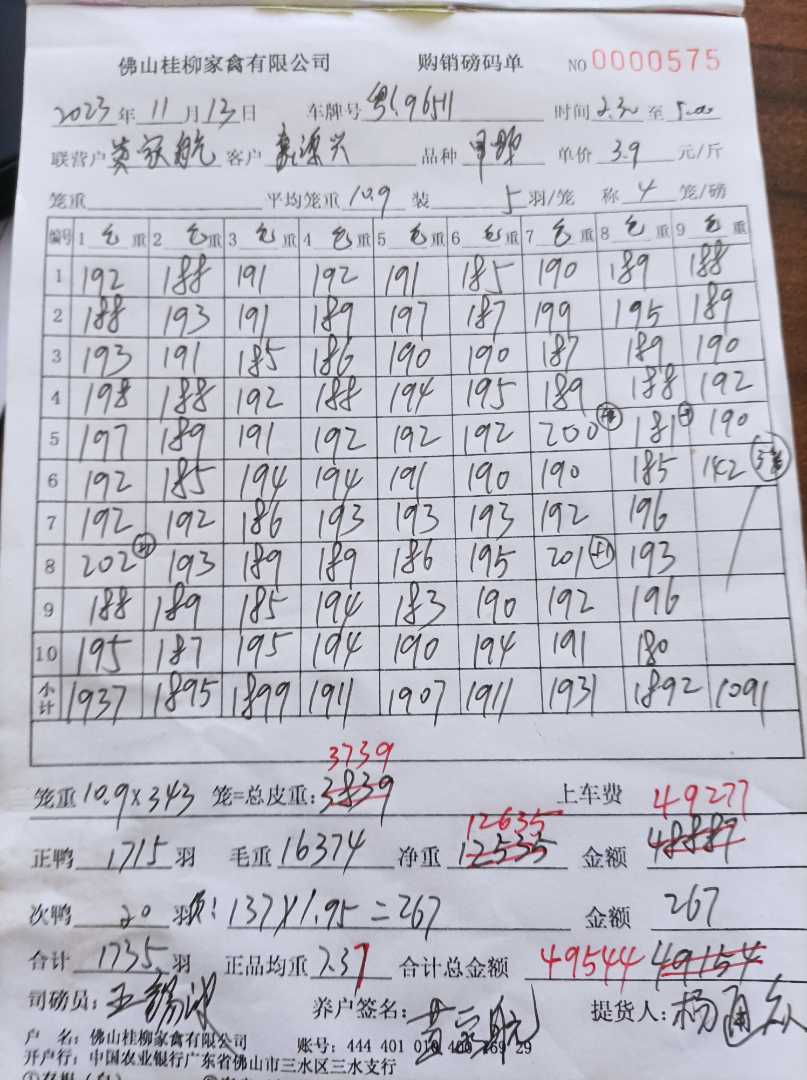 佛山桂柳家禽有限公司 购销磅码单 NO 0000575
2023年11月13日 车牌号 时间2.30至5.00
联营户黄家航 客户 品种 单价3.9元/斤
笼重 平均笼重10.9 装5羽/笼 称4笼/磅
编号 1毛重 2毛重 3毛重 4毛重 5毛重 6毛重 7毛重 8毛重 9毛重
1 192 188 191 192 191 185 190 189 188
2 188 193 191 189 197 187 199 195 189
3 193 191 185 186 190 190 187 189 190
4 198 188 192 188 194 195 189 188 192
5 197 189 191 192 192 192 200 181 190
6 192 185 194 194 191 190 190 185 142
7 192 192 186 193 193 193 192 196
8 202 193 189 189 186 195 201 +1 193
9 188 189 185 194 183 190 192 196
10 195 187 195 194 190 194 191 180
小计 1937 1895 1899 1911 1907 1911 1931 1892 1091
3739
笼重10.9×343 笼=总皮重:3839 上车费 49277
12635
正鸭1715羽 毛重16374 净重12535 金额48887
次鸭20羽 137×1.95=267 金额267
合计1735羽 正品均重7.37 合计总金额49544 49154
司磅员: 养户签名:黄家航 提货人:杨通
户 名:佛山桂柳家禽有限公司 账号:444 401 010 400 169 29
开户行:中国农业银行广东省佛山市三水区三水支行